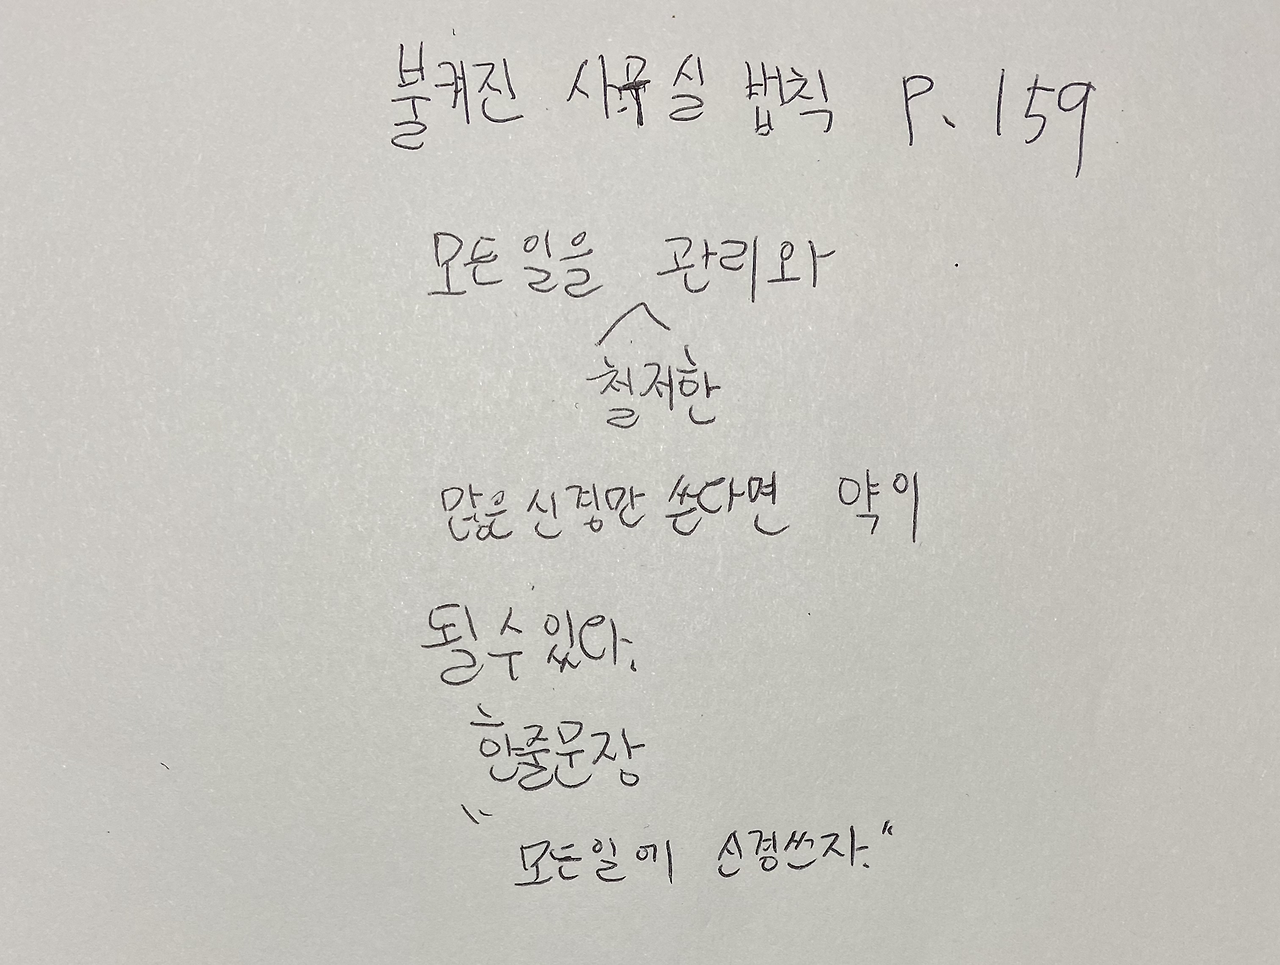 불켜진 사무실 법칙 P. 159
모든일을 관리와
철저한
많은신경만 쓴다면 약이
될수있다.
한줄문장
"모든일에 신경쓰자."